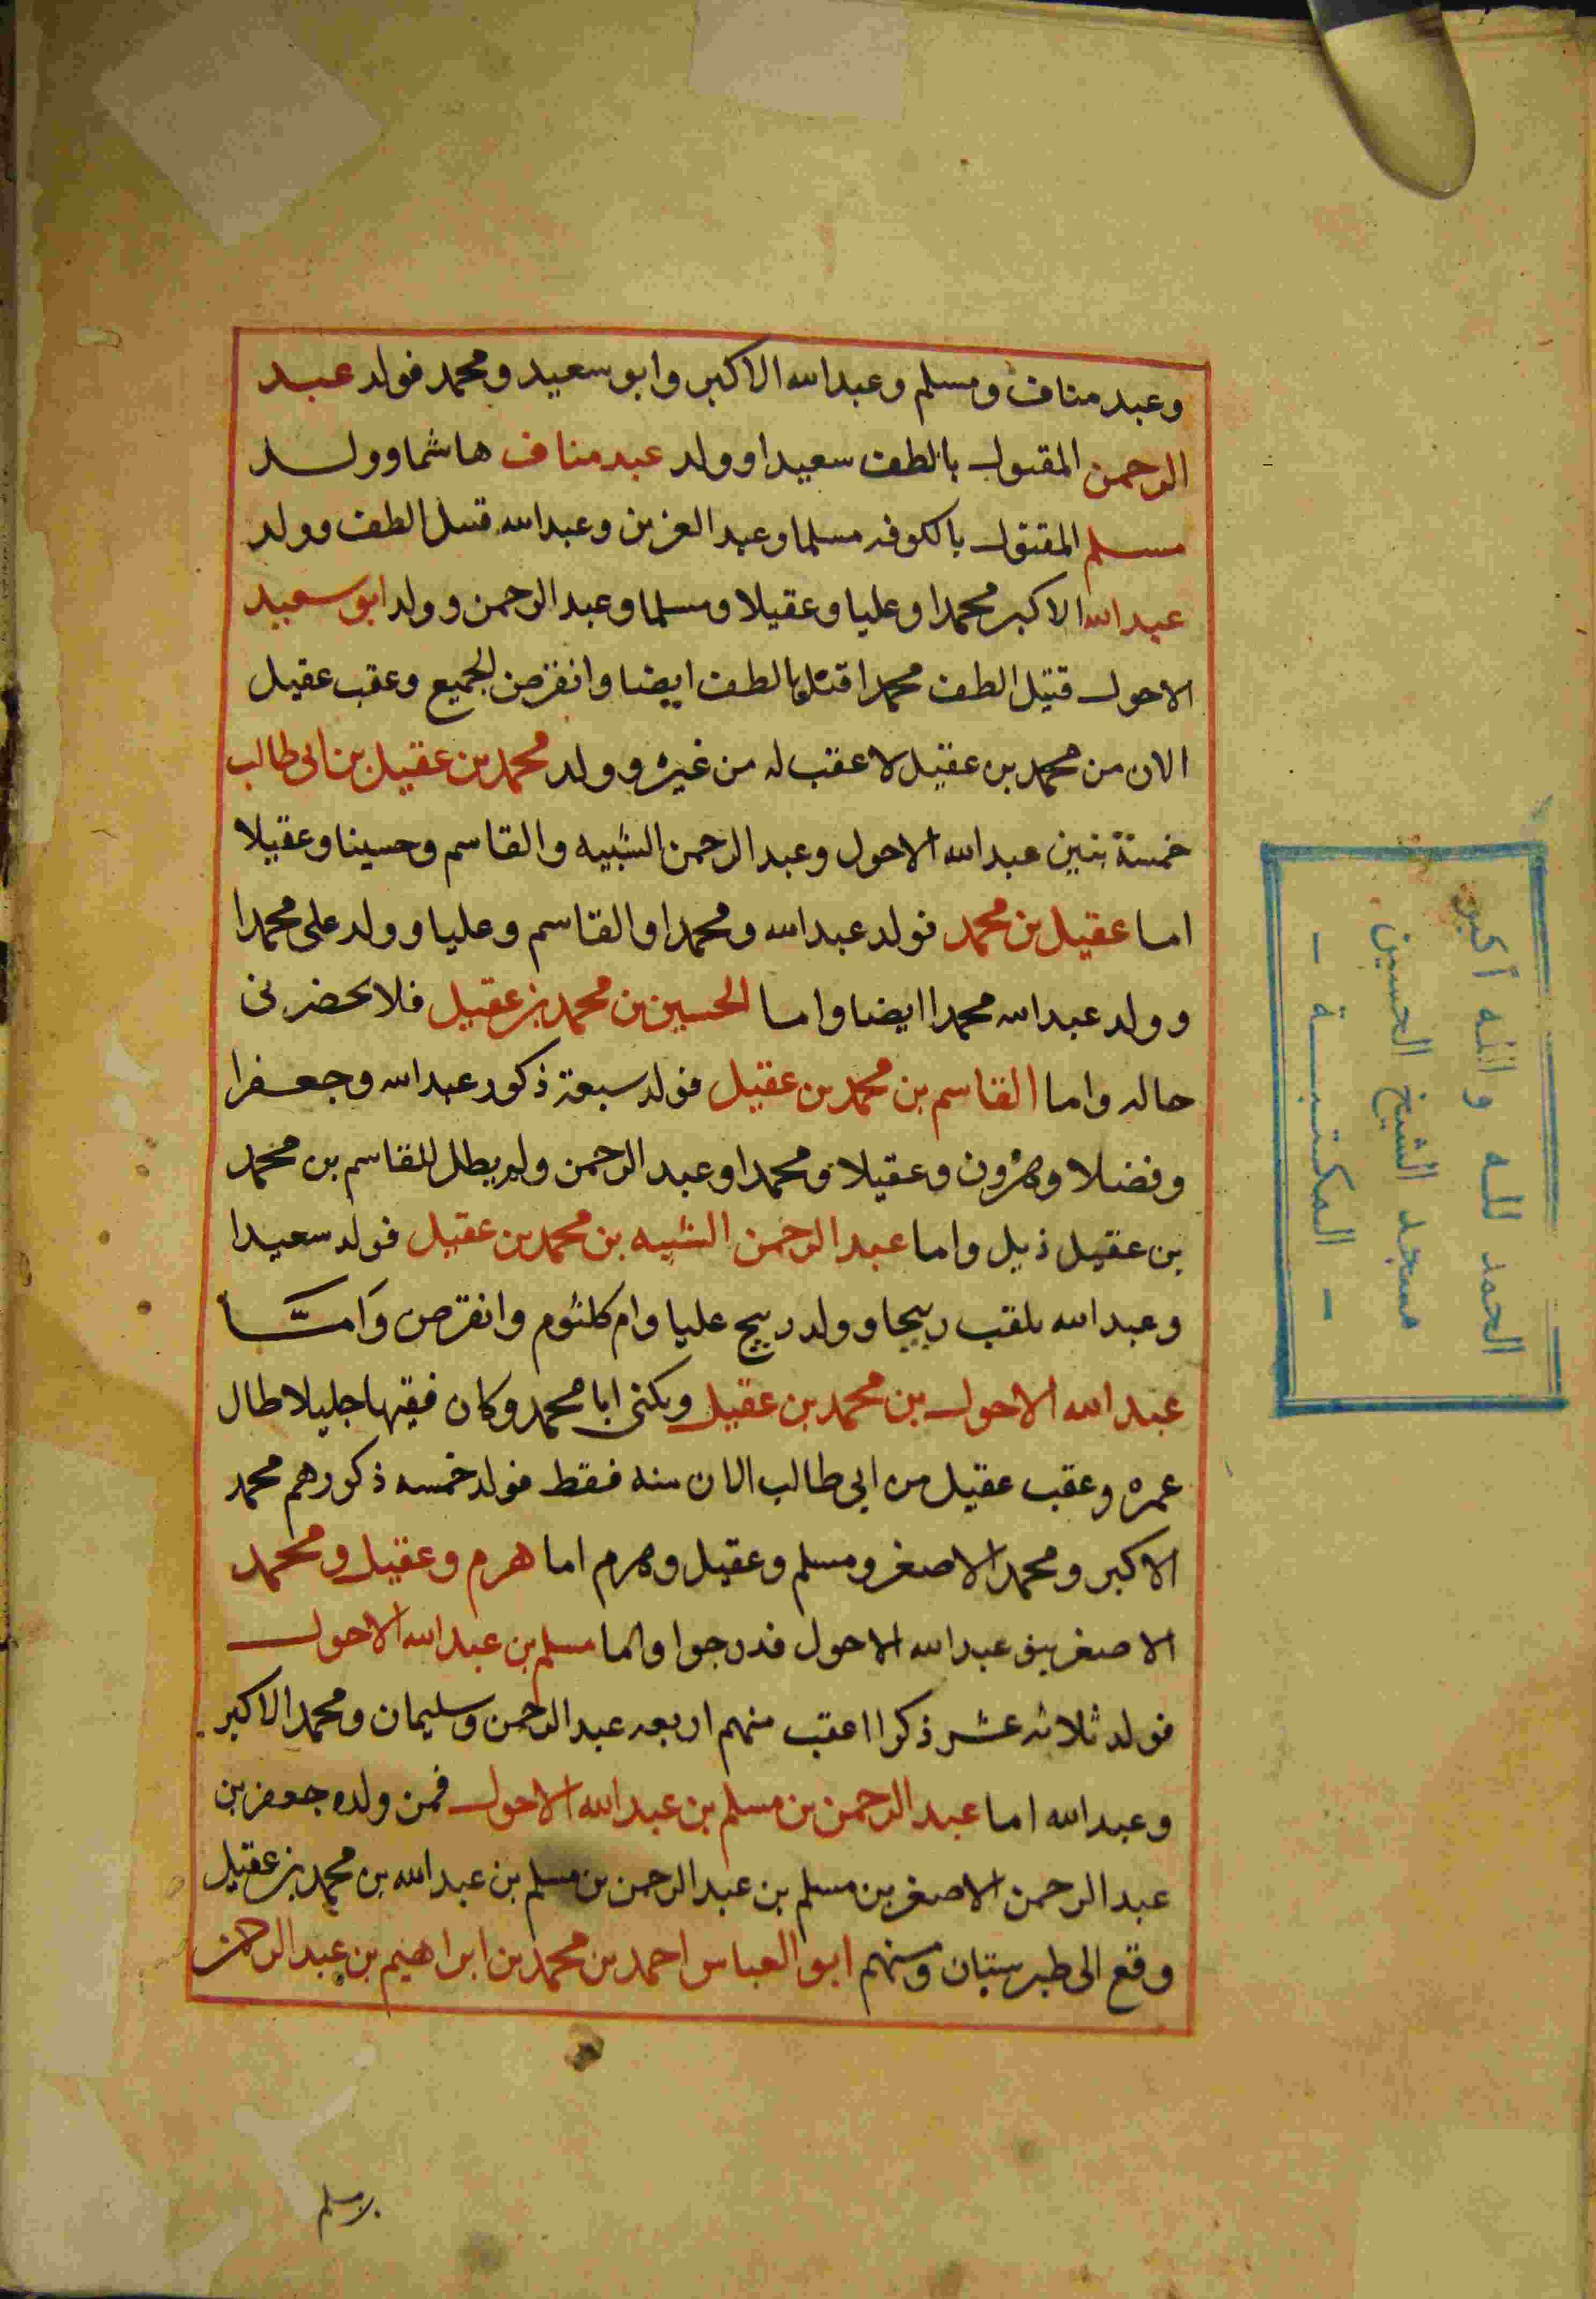 وعبد مناف ومسلم وعبد الله الاكبر وابو سعيد ومحمد فولد عبد
الرحمن المقتول بالطف سعيدا وولد عبد مناف هاشما وولد
مسلم المقتول بالكوفه مسلما وعبد العزيز وعبد الله قتيل الطف وولد
عبد الله الاكبر محمدا وعليا وعقيلا ومسلما وعبد الرحمن وولد ابو سعيد
الاحول قتيل الطف محمدا قتل بالطف ايضا وانقرض الجميع وعقب عقيل
الان من محمد بن عقيل لا عقب له من غيره وولد محمد بن عقيل بن ابى طالب
خمسة بنين عبد الله الاحول وعبد الرحمن الشبيه والقاسم وحسينا وعقيلا
اما عقيل بن محمد فولد عبد الله ومحمدا والقاسم وعليا وولد على محمدا
وولد عبد الله محمدا ايضا واما الحسين بن محمد بن عقيل فلا يحضرنى
حاله واما القاسم بن محمد بن عقيل فولد سبعة ذكور عبد الله وجعفرا
وفضلا وهرون وعقيلا ومحمدا وعبد الرحمن ولم يطل للقاسم بن محمد
بن عقيل ذيل واما عبد الرحمن الشبيه بن محمد بن عقيل فولد سعيدا
وعبد الله يلقب ربيحا وولد ربيح عليا وام كلثوم وانقرض وَامَّا
عبد الله الاحول بن محمد بن عقيل ويكنى ابا محمد وكان فقيها جليلا طال
عمره وعقب عقيل بن ابى طالب الان منه فقط فولد خمسه ذكور هم محمد
الاكبر ومحمد الاصغر ومسلم وعقيل وهرم اما هرم وعقيل ومحمد
الاصغر بنو عبد الله الاحول فدرجوا واما مسلم بن عبد الله الاحول
فولد ثلاثه عشر ذكرا اعقب منهم اربعه عبد الرحمن وسليمان ومحمد الاكبر
وعبد الله اما عبد الرحمن بن مسلم بن عبد الله الاحول فمن ولده جعفر بن
عبد الرحمن الاصغر بن مسلم بن عبد الرحمن بن مسلم بن عبد الله بن محمد بن عقيل
وقع الى طبرستان ومنهم ابو العباس احمد بن محمد بن ابراهيم بن عبد الرحمن
بن مسلم
الحمد لله والله أكبر
مسجد الشيخ الحسين
- المكتبة -